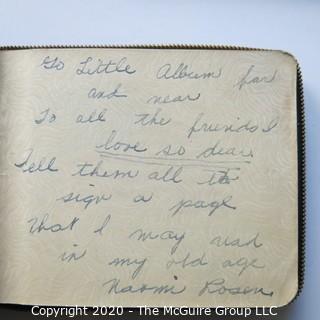 Go Little Album far
and near
To all the friends I
love so dear
Tell them all to
sign a page
That I may read
in my old age
Naomi Rosen
Copyright 2020 - The McGuire Group, Inc.